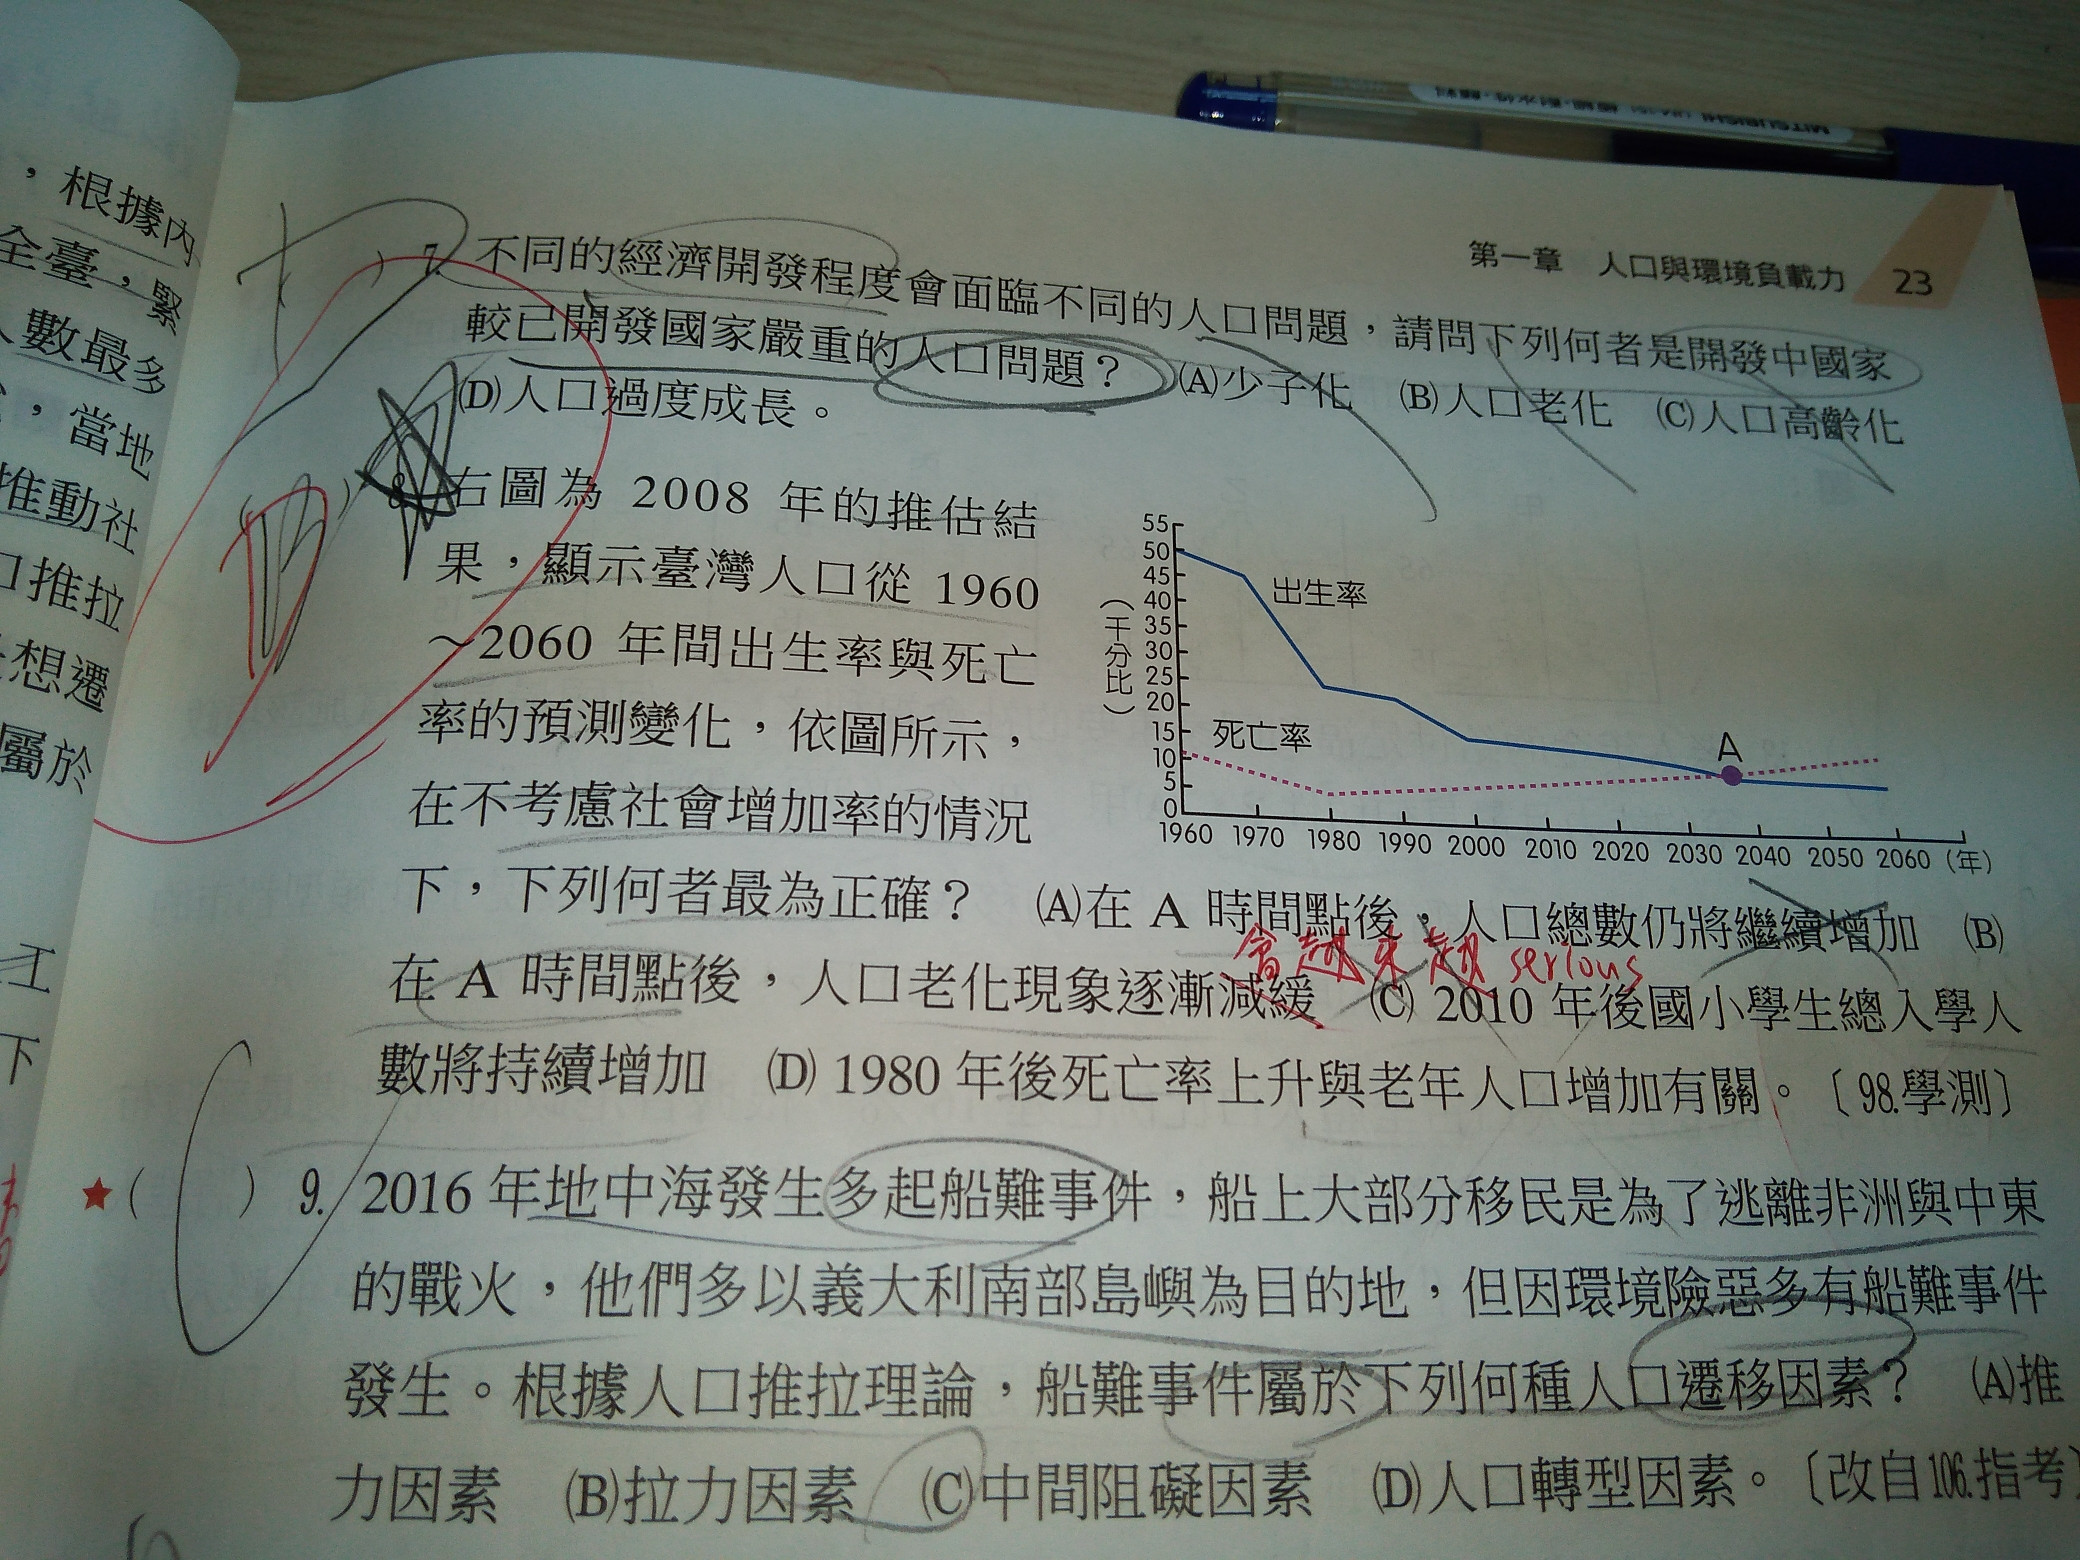 第一章 人口與環境負載力 23
7. 不同的經濟開發程度會面臨不同的人口問題，請問下列何者是開發中國家
較已開發國家嚴重的人口問題？ (A)少子化 (B)人口老化 (C)人口高齡化
(D)人口過度成長。
8. 右圖為 2008 年的推估結
果，顯示臺灣人口從 1960
～2060 年間出生率與死亡
率的預測變化，依圖所示，
在不考慮社會增加率的情況
下，下列何者最為正確？ (A)在 A 時間點後，人口總數仍將繼續增加 (B)
會越來越 serious
在 A 時間點後，人口老化現象逐漸減緩 (C) 2010 年後國小學生總入學人
數將持續增加 (D) 1980 年後死亡率上升與老年人口增加有關。〔98.學測〕
55
50
45
40
35
30
25
20
15
10
5
0
（千分比）
出生率
死亡率
A
1960 1970 1980 1990 2000 2010 2020 2030 2040 2050 2060 (年)
★( C ) 9. 2016 年地中海發生多起船難事件，船上大部分移民是為了逃離非洲與中東
的戰火，他們多以義大利南部島嶼為目的地，但因環境險惡多有船難事件
發生。根據人口推拉理論，船難事件屬於下列何種人口遷移因素？ (A)推
力因素 (B)拉力因素 (C)中間阻礙因素 (D)人口轉型因素。〔改自106.指考〕
，根據內
全臺，緊
人數最多
，當地
推動社
口推拉
想遷
屬於
工
下
MITSUBISHI